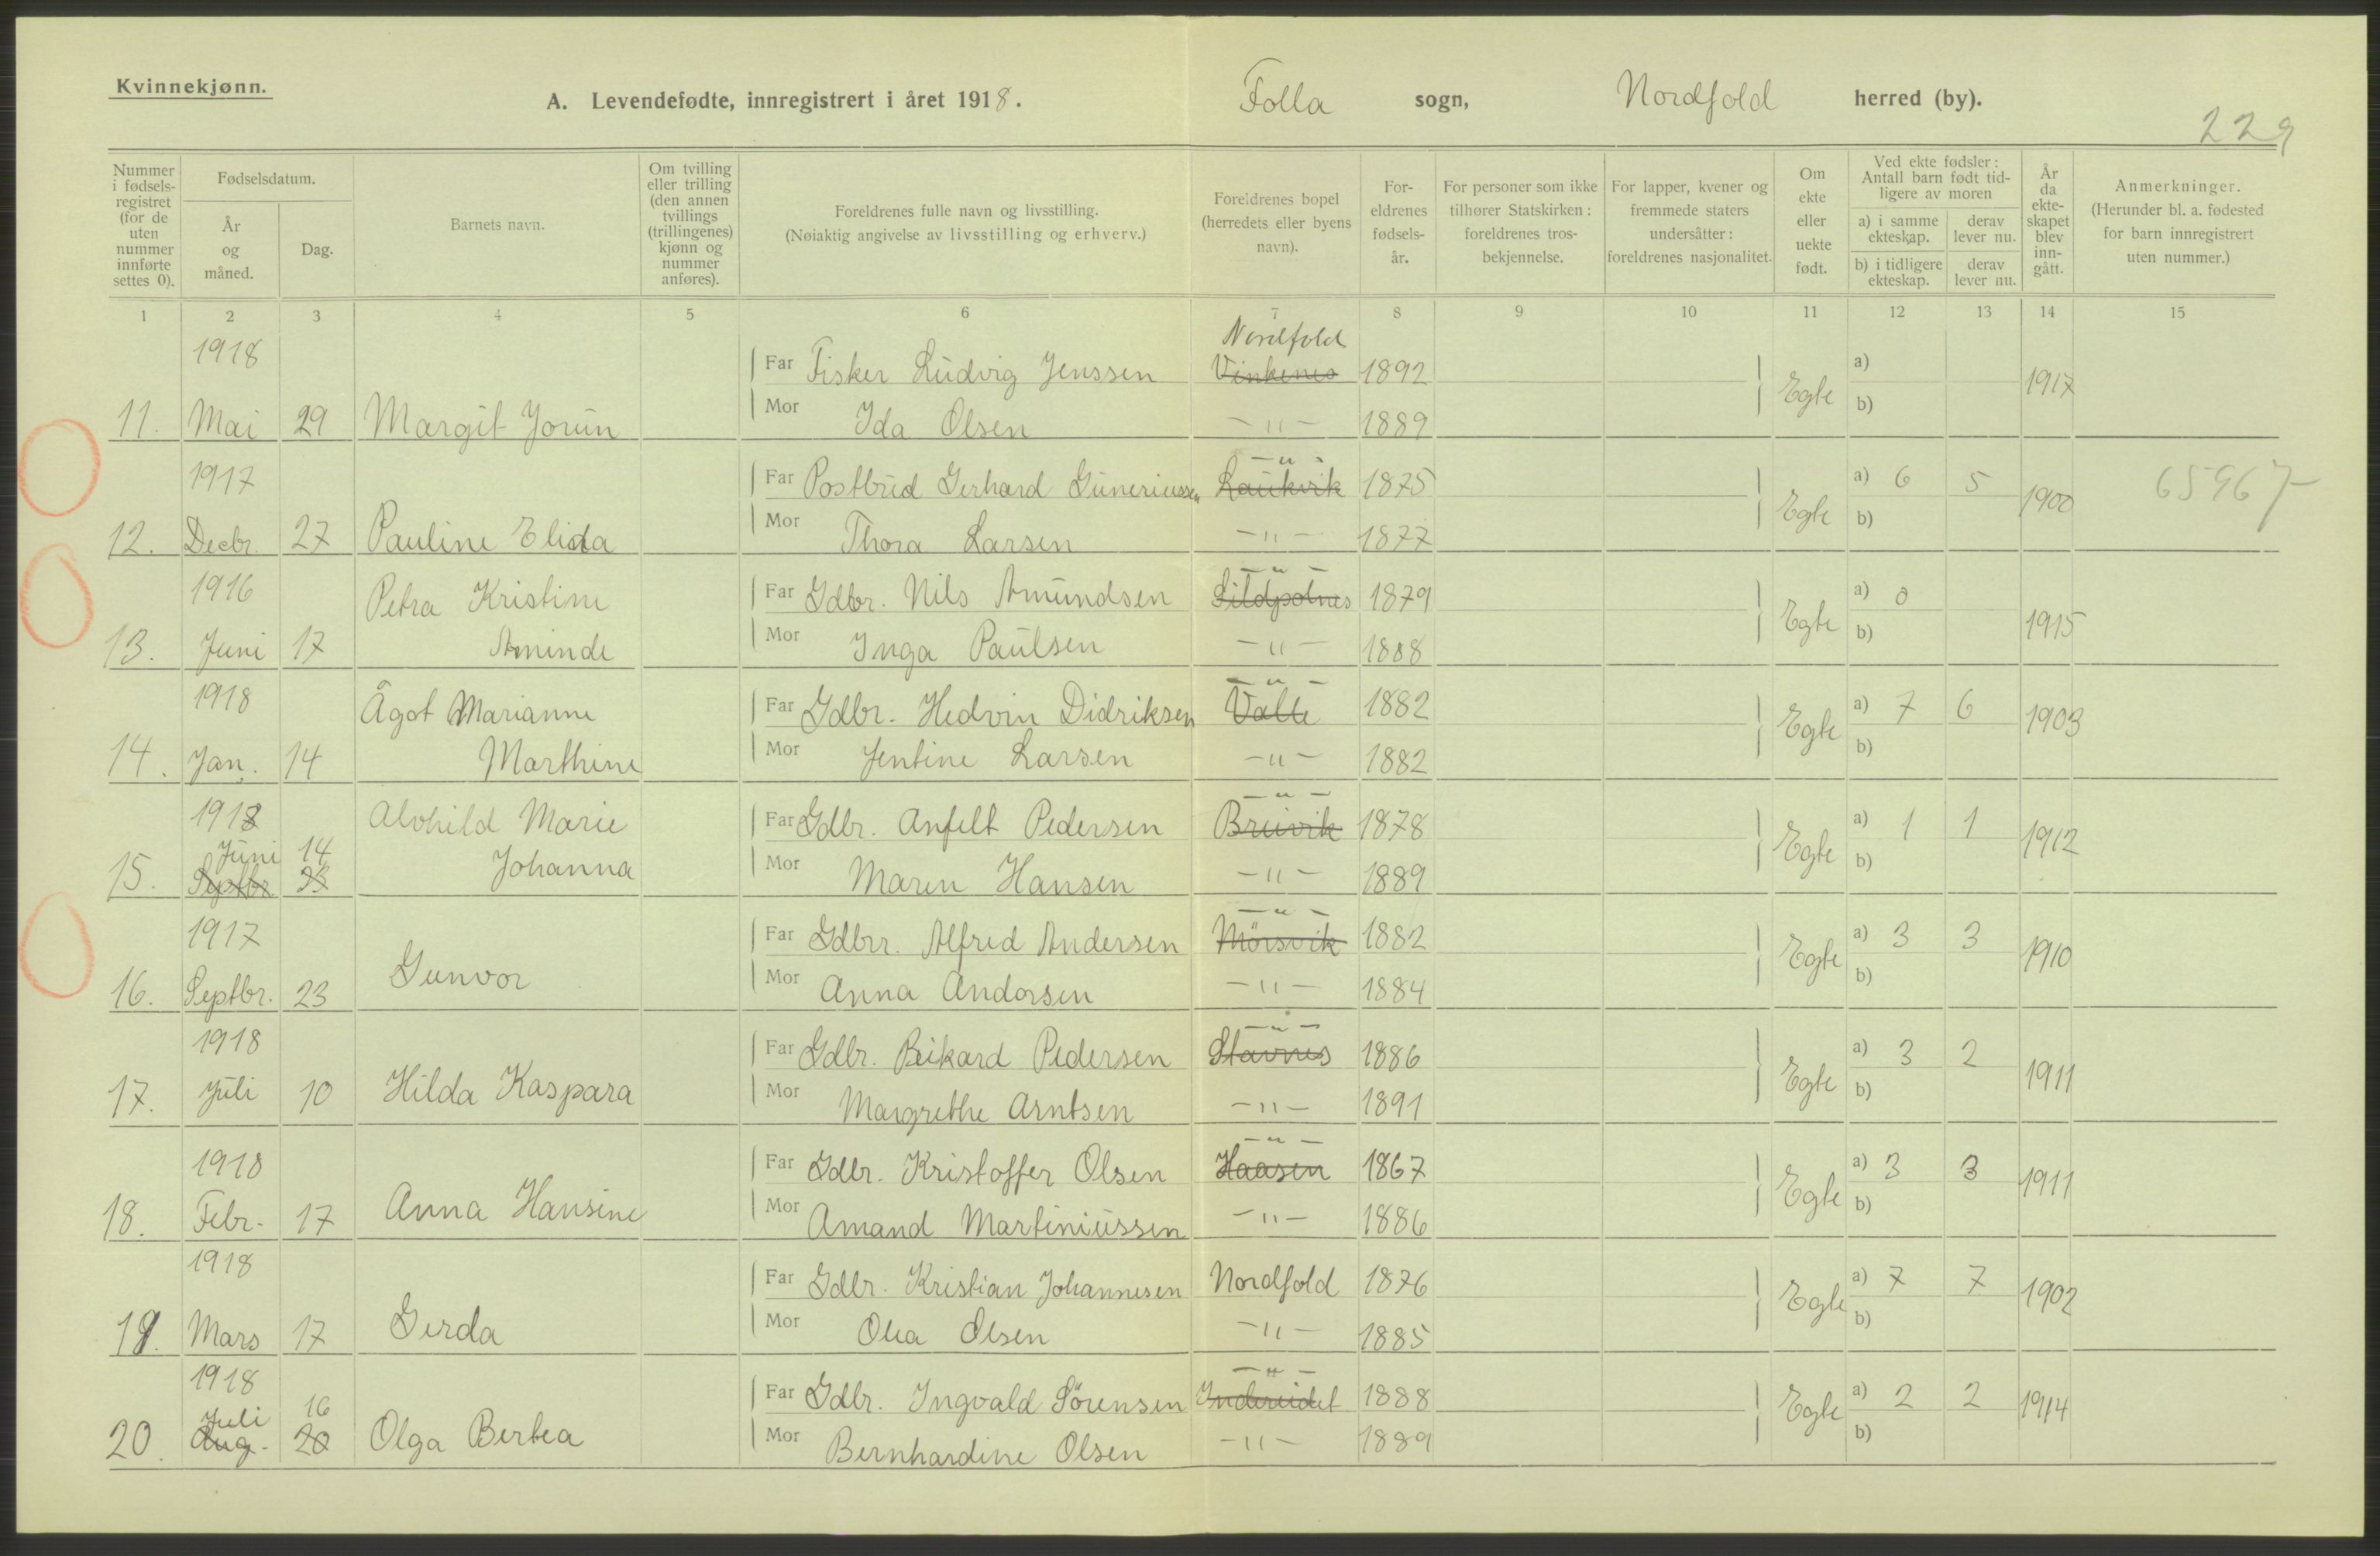 Kvinnekjønn.
A. Levendefødte, innregistrert i året 1918. Folla sogn, Nordfold herred (by).
229
Nummer i fødsels-registret (for de uten nummer innførte settes 0).
Fødselsdatum.
År og måned.
Dag.
Barnets navn.
Om tvilling eller trilling (den annen tvillings (trillingenes) kjønn og nummer anføres).
Foreldrenes fulle navn og livsstilling. (Nøiaktig angivelse av livsstilling og erhverv.)
Foreldrenes bopel (herredets eller byens navn).
For-eldrenes fødsels-år.
For personer som ikke tilhører Statskirken: foreldrenes tros-bekjennelse.
For lapper, kvener og fremmede staters undersåtter: foreldrenes nasjonalitet.
Om ekte eller uekte født.
Ved ekte fødsler: Antall barn født tid-ligere av moren
a) i samme ekteskap. derav lever nu.
b) i tidligere ekteskap. derav lever nu.
År da ekte-skapet blev inn-gått.
Anmerkninger. (Herunder bl. a. fødested for barn innregistrert uten nummer.)
1 2 3 4 5 6 7 8 9 10 11 12 13 14 15
1918 Far Fisker Ludvig Jenssen Nordfold Vinkenes 1892 a)
11. Mai 29 Margit Jorun Mor Ida Olsen -"- 1889 Egte b) 1917
1917 Far Postbud Gerhard Guneriussen -"- Laukvik 1875 a) 6 5 65967
12. Decbr. 27 Pauline Elida Mor Thora Larsen -"- 1877 Egte b) 1900
1916 Petra Kristine Far Gdbr. Nils Amundsen -"- Sildpolnes 1879 a) 0
13. Juni 17 Aminde Mor Inga Paulsen -"- 1888 Egte b) 1915
1918 Ågot Marianne Far Gdbr. Hedvin Didriksen -"- Valle 1882 a) 7 6
14. Jan. 14 Marthine Mor Jentine Larsen -"- 1882 Egte b) 1903
1918 Alvhild Marie Far Gdbr. Anfelt Pedersen -"- Breivik 1878 a) 1 1
Juni 14
15. Septbr Johanna Mor Maren Hansen -"- 1889 Egte b) 1912
1917 Far Gdbr. Alfred Andersen -"- Mörsvik 1882 a) 3 3
16. Septbr. 23 Gunvor Mor Anna Andorsen -"- 1884 Egte b) 1910
1918 Far Gdbr. Rikard Pedersen -"- Stavnes 1886 a) 3 2
17. Juli 10 Hilda Kaspara Mor Margrethe Arntsen -"- 1891 Egte b) 1911
1918 Far Gdbr. Kristoffer Olsen -"- Haasen 1867 a) 3 3
18. Febr. 17 Anna Hansine Mor Amand Martiniussen -"- 1886 Egte b) 1911
1918 Far Gdbr. Kristian Johannesen Nordfold 1876 a) 7 7
19. Mars 17 Gerda Mor Olea Olsen -"- 1885 Egte b) 1902
1918 Far Gdbr. Ingvald Sörensen -"- Indereidet 1888 a) 2 2
Juli 16
20. Aug. 20 Olga Bertea Mor Bernhardine Olsen -"- 1889 Egte b) 1914